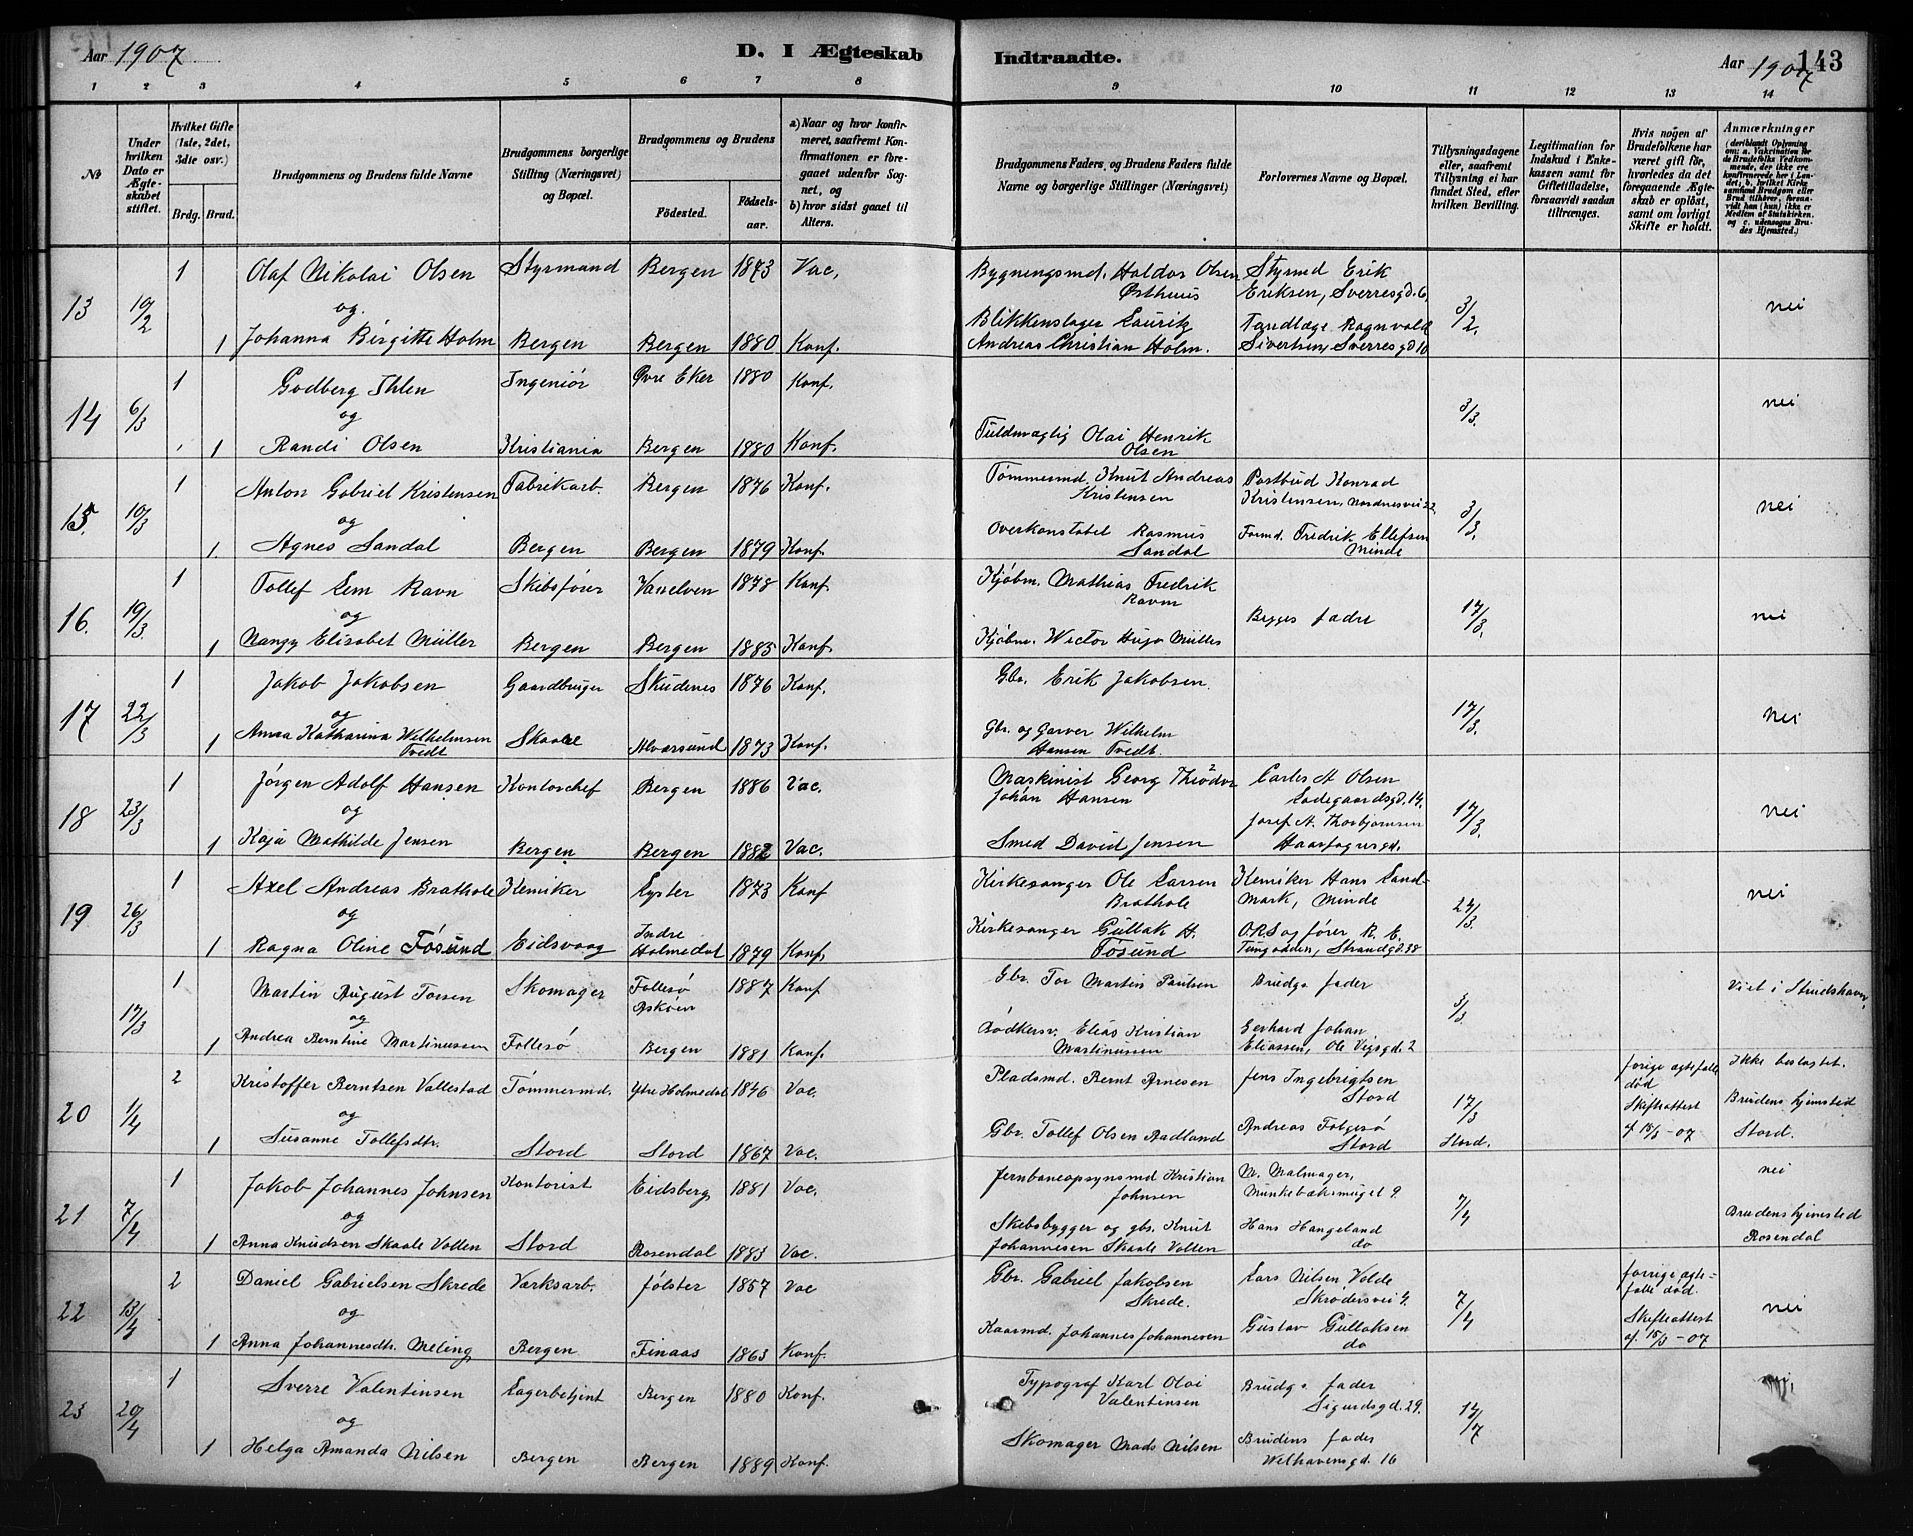 Aar 1907
D. I Ægteskab Indtraadte.
Aar 1907
143
1 2 3 4 5 6 7 8 9 10 11 12 13 14
No
Under hvilken Dato er Ægteskabet stiftet.
Hvilket Gifte (1ste, 2det, 3die osv.)
Brdg. Brud.
Brudgommens og Brudens fulde Navne
Brudgommens borgerlige Stilling (Næringsvei) og Bopæl.
Brudgommens og Brudens
Födested.
Födselsaar.
a) Naar og hvor konfirmeret, saafremt Konfirmationen er foregaaet udenfor Sognet, og
b) hvor sidst gaaet til Alters.
Brudgommens Faders, og Brudens Faders fulde Navne og borgerlige Stillinger (Næringsvei)
Forlovernes Navne og Bopæl.
Tillysningsdagene eller, saafremt Tillysning ei har fundet Sted, efter hvilken Bevilling.
Legitimation for Indskud i Enkekassen samt for Giftetilladelse, forsaavidt saadan tiltrænges.
Hvis nogen af Brudefolkene har været gift för, hvorledes da det foregaaende Ægteskab er oplöst, samt om lovligt Skifte er holdt.
Anmærkninger (deriblandt Oplysning om: a. Vakcination for de Brudefolks Vedkommende, der ikke ere konfirmerede her i Landet, b. hvilket Kirkesamfund Brudgom eller Brud tilhører, forsaavidt han (hun) ikke er Medlem af Statskirken, og c. udensogns Brudes Hjemsted.)
13 10/2 1 Olaf Nikolai Olsen Styrmand Bergen 1873 Vac. Bygningsmd. Haldor Olsen Østhuus Styrmd Erik Eriksen, Sverresgd. 6 3/2. nei
og
1 Johanna Birgitte Holm Bergen Bergen 1880 Konf. Blikkenslager Lauritz Andreas Christian Holm. Tandlæge Ragnvald Sivertsen, Sverresgd 10
14 6/3 1 Godberg Ihlen Ingeniør Øvre Eker 1880 Konf. 3/3. nei
og
1 Randi Olsen Kristiania Bergen 1880 Konf. Fuldmægtig Olai Henrik Olsen
15. 10/3 1 Anton Gabriel Kristensen Fabrikarb. Bergen 1876 Konf. Tømmermd. Knut Andreas Kristensen Postbud Konrad Kristensen, Nordnesvei 22 3/3. nei
og
1 Agnes Sandal Bergen Bergen 1879 Konf. Overkonstabel Rasmus Sandal Formd. Fredrik Ellefsen Minde
16. 19/3. 1 Tollef Lem Ravn Skibsfører Vanelven 1878 Konf. Kjøbm. Mathias Fredrik Ravn Begges fadre 17/3. nei
og
1 Nangy Elisabet Müller Bergen Bergen 1885 Konf. Kjøbm. Wictor Hugo Müller
17 22/3 1 Jakob Jakobsen Gaardbruger Skudenes 1876 Konf. Gbr. Erik Jakobsen. 17/3. nei
og
1 Anna Katharina Wilhelmsen Tvedt Skaale Alversund 1873 Konf. Gbr. og Garver Wilhelm Hansen Tvedt.
18 23/3 1 Jørgen Adolf Hansen Kontorchef Bergen 1886 Vac. Maskinist Georg Theodor Johan Hansen Carles A Olsen Ladegaardsgd. 14. 17/3. nei
og
1 Kaja Mathilde Jensen Bergen Bergen 1882 Vac. Smed David Jensen Josef A. Thorbjørnsen Haarfagersgd.
19 26/3 1 Axel Andreas Brathole Kemiker Lyster 1873 Konf Kirkesanger Ole Larsen Brathole Kemiker Hans Landmark, Minde 24/3. nei
og
1 Ragna Oline Føsund Eidsvaag Indre Holmedal 1879 Konf. Kirkesanger Gullak H. Føsund O.R.Sagfører R. E. Tungodden, Strandgd. 38
17/3 1 Martin August Torsen Skomager Follesø Askøin 1887 Konf Gbr. Tor Martin Paulsen Brudgs fader 3/3. Viet i Strudshavn
og
1 Andrea Berntine Martinussen Follesø Bergen 1881 Konf. Bødkersv. Elias Kristian Martinussen Gerhard Johan Eliassen, Ole Vigsgd. 2
20 1/4 2 Kristoffer Berntsen Vallestad Tømmermd. Ytre Holmedal 1846 Vac. Pladsmd. Bernt Arnesen Jens Ingebrigtsen Stord 17/3 Stord. forige ægtefælle død Skifteattest af 15/3-07 Ikke beslægtet. Brudens hjemsted Stord.
og
1 Susanne Tollefsdtr. Stord Stord 1867 Vac. Gbr. Tollef Olsen Aadland Andreas Følgesø Stord
21 7/4 1 Jakob Johannes Johnsen Kontorist Eidsberg 1881 Vac. Jernbaneopsynsmd Kristian Johnsen M. Malmager, Munkebæksmuget 9. 7/4 nei Brudens hjemsted Rosendal
og
1 Anna Knudsen Skaale Valen Stord Rosendal 1883 Vac. Skibsbygger og gbr. Knut Johannesen Skaale Vollen Hans Hangeland do
22 13/4 2 Daniel Gabrielsen Skrede Værksarb. Jølster 1857 Vac Gbr. Gabriel Jakobsen Skrede. Lars Nilsen Volde Skrædersvei 4. 7/4 forrige ægtefælle død. Skifteattest af. 15/3-07 nei
og
1 Anna Johannesdtr. Meling Bergen Finaas 1863 Konf. Kaarmd. Johannes Johannesen Gustav Gullaksen do
23 20/4 1 Sverre Valentinsen Lagerbetjent Bergen 1880 Konf. Typograf Karl Olai Valentinsen Brudgs fader Sigurdsgd. 29. 14/7 nei,
og
1 Helga Amanda Nilsen Bergen Bergen 1889 Konf. Skomager Mads Nilsen Brudens fader Welhavensgd. 16